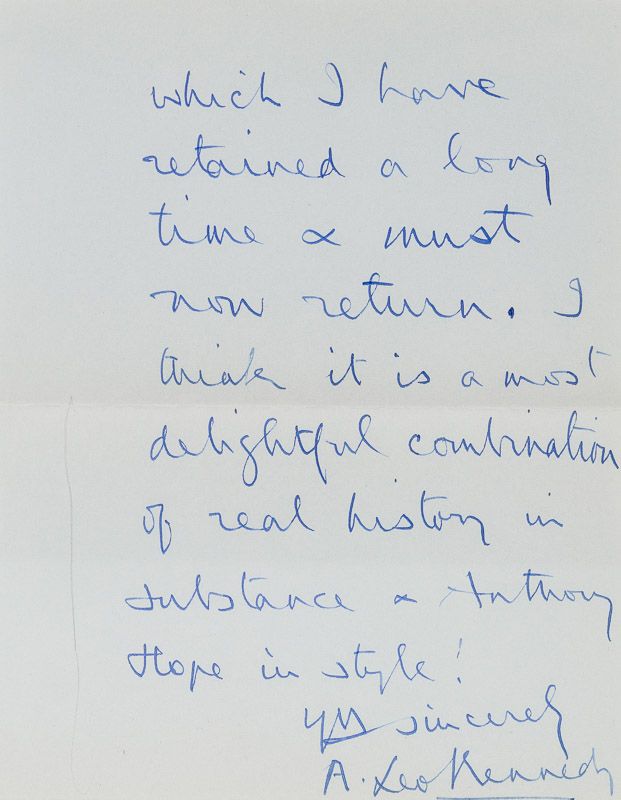 which I have
retained a long
time & must
now return. I
think it is a most
delightful combination
of real history in
substance & Anthony
Hope in style!
Yrs sincerely
A. Leo Kennedy